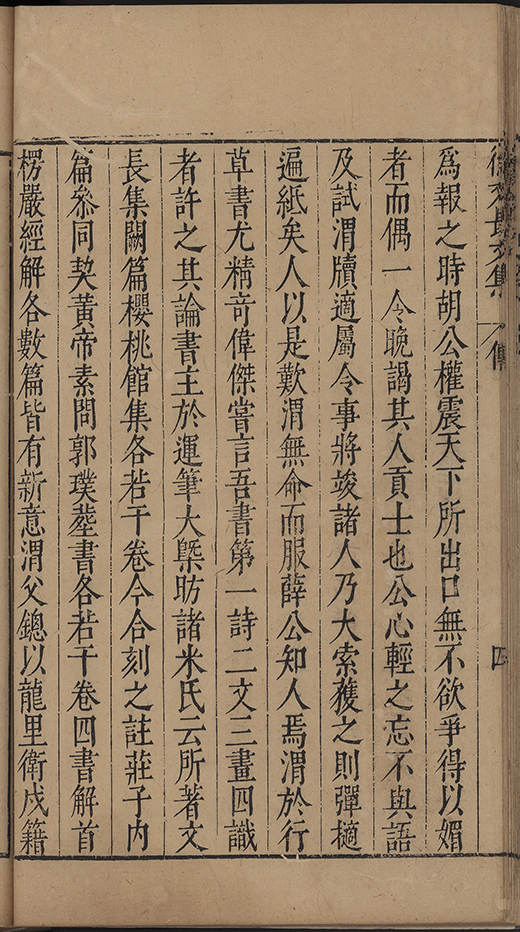 徐文長文集 傳 四
為報之時胡公權震天下所出口無不欲爭得以媚
者而偶一令晚謁其人貢士也公心輕之忘不與語
及試渭牘適屬令事將竣諸人乃大索獲之則彈擿
遍紙矣人以是歎渭無命而服薛公知人焉渭於行
草書尤精奇偉傑嘗言吾書第一詩二文三畫四識
者許之其論書主於運筆大槩昉諸米氏云所著文
長集闕篇櫻桃館集各若干卷今合刻之註莊子內
篇叅同契黃帝素問郭璞葬書各若干卷四書解首
楞嚴經解各數篇皆有新意渭父鏓以龍里衛戍籍